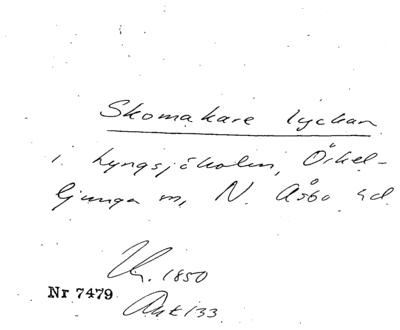 Skomakare lyckan
i. Lyngsjöholm, Örkel-
ljunga m, N. Åsbo hd.
1850
Nr 7479
Akt 133